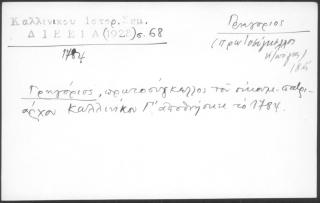 Καλλινίκου Ιστορ. Σημ.
ΔΙΕΕΙΑ (1928) σ. 68
1784
Γρηγόριος
(πρωτοσύγκελλος
Γρηγόριος, πρωτοσύγκελλος τοῦ οἰκουμ. πατρι-
άρχου Καλλινίκου Γ' ἀπέθνησκε τὸ 1784.